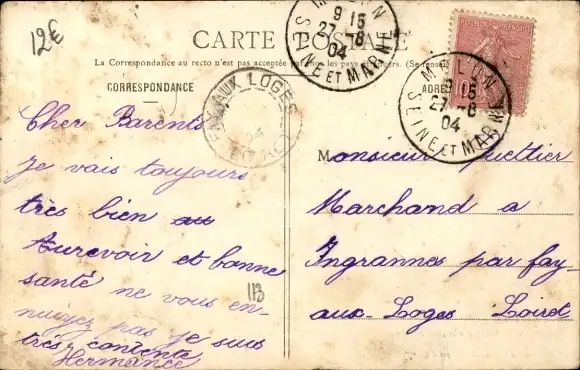 12€
CARTE POSTALE
La Correspondance au recto n'est pas acceptée par tous les pays étrangers. (Se rensei
CORRESPONDANCE
ADRES
MELUN
9 15
27-8
04
SEINE ET MARNE
MELUN
9 15
27-8
04
SEINE ET MARNE
FAY AUX LOGES
LOIRET
Cher Parents
Je vais toujours
très bien au
Aurevoir et bonne
santé ne vous en-
nuiyez pas je suis
très contente
Hermance
113
Monsieur Quettier
Marchand a
Ingrannes par fay
aux-Loges Loiret